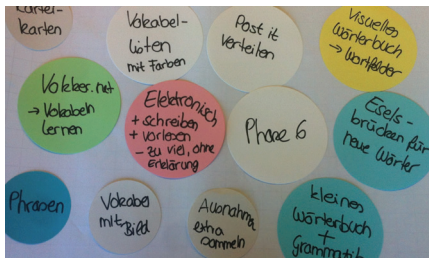 karten
Vokabel-
listen
mit Farben
Post it
verteilen
Visuelles
Wörterbuch
→ Wortfelder
→ Vokabeln
lernen
Elektronisch
+ schreiben
+ vorlesen
- zu viel, ohne
Erklärung
Phase 6
Esels-
brücken für
neue Wörter
Phrasen
Vokabel
mit Bild
extra
sammeln
kleines
Wörterbuch
+